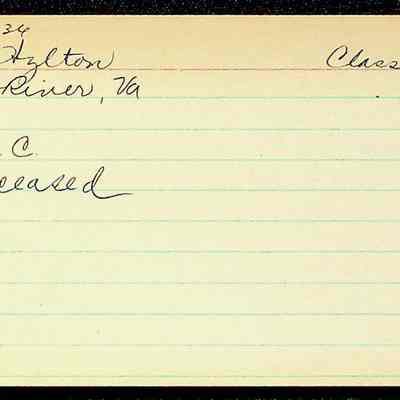 34
Hylton Class
River, Va
. C.
ceased